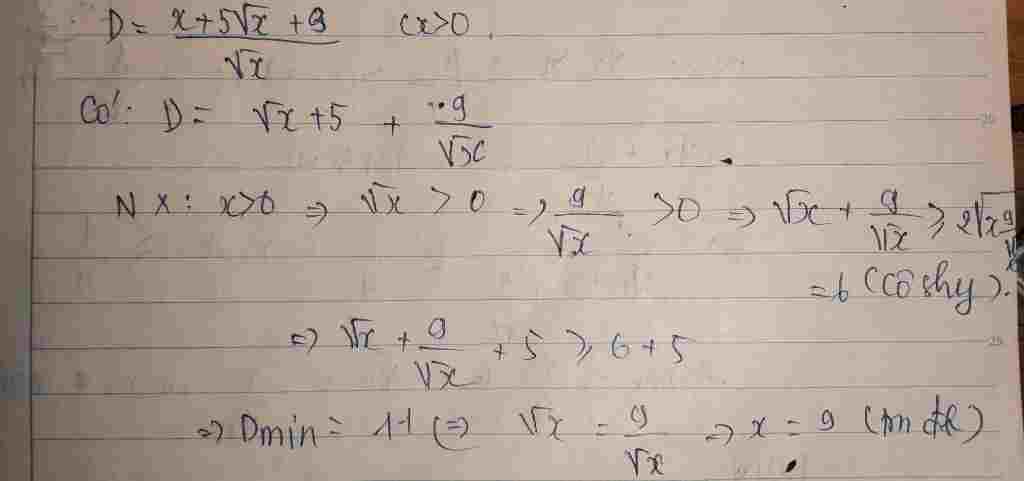 D = (x+5√x+9)/√x (x>0.
Có: D = √x+5 + 9/√x
NX: x>0 => √x > 0 => 9/√x >0 => √x + 9/√x ≥ 2√(√x 9/√x)
=6 (Côshy).
=> √x + 9/√x + 5 ≥ 6+5
=> Dmin = 11 <=> √x = 9/√x => x = 9 (tm đk)